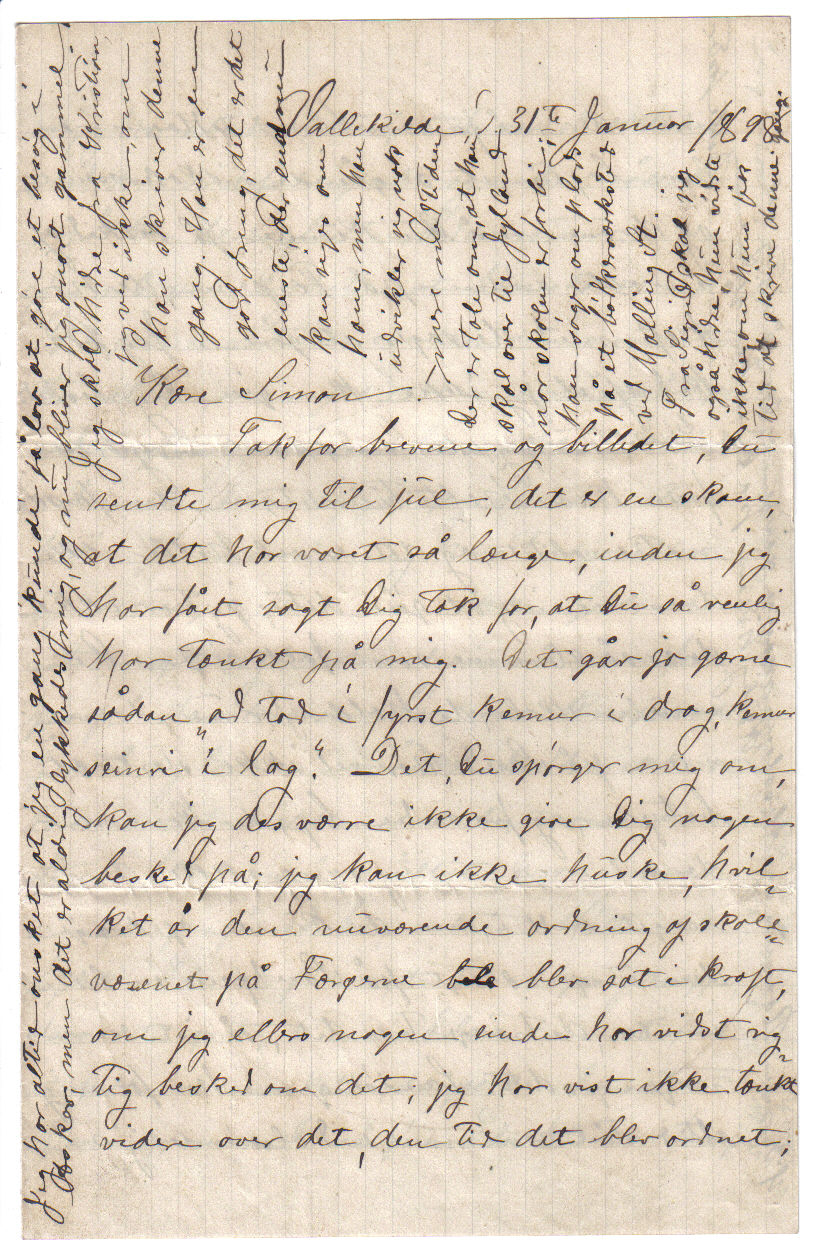 Vallekilde, d. 31te Januar 1898.
Kære Simon.
Tak for brevene og billedet, Du
sendte mig til jul, det er en skam,
at det har varet så længe, inden jeg
har fået sagt Dig tak for, at Du så venlig
har tænkt på mig. Det går jo gærne
sådan „ad tad i fyrst kemur i drag, kemur
seinri i lag.“ Det, Du spörger mig om,
kan jeg des værre ikke give Dig nogen
besked på; jeg kan ikke huske, hvil-
ket år den nuværende ordning af skole-
væsenet på Færøerne blev sat i kraft,
om jeg ellers nogen sinde har vidst rig-
tig besked om det; jeg har vist ikke tænkt
videre over det, den tid det blev ordnet;
Jeg har altid önsket at jeg en gang kunde få lov at göre et besög i
Påsker, men det er aldrig lykkedes mig, og nu bliver jeg snart gammel.
Jeg skal hilse fra Kristian,
jeg ved ikke, om
han skriver denne
gang. Han er en
god dreng, det er det
eneste, der endnu
kan siges om
ham, men han
udvikler sig nok
mere med tiden
Der er tale om, at han
skal over til Jylland
når skolen er forbi;
han söger om plads
på et bötkerværksted
ved Malling St.
Fra Sigrid skal jeg
også hilse, hun vidste
ikke, om hun fik
tid at skrive denne gang.